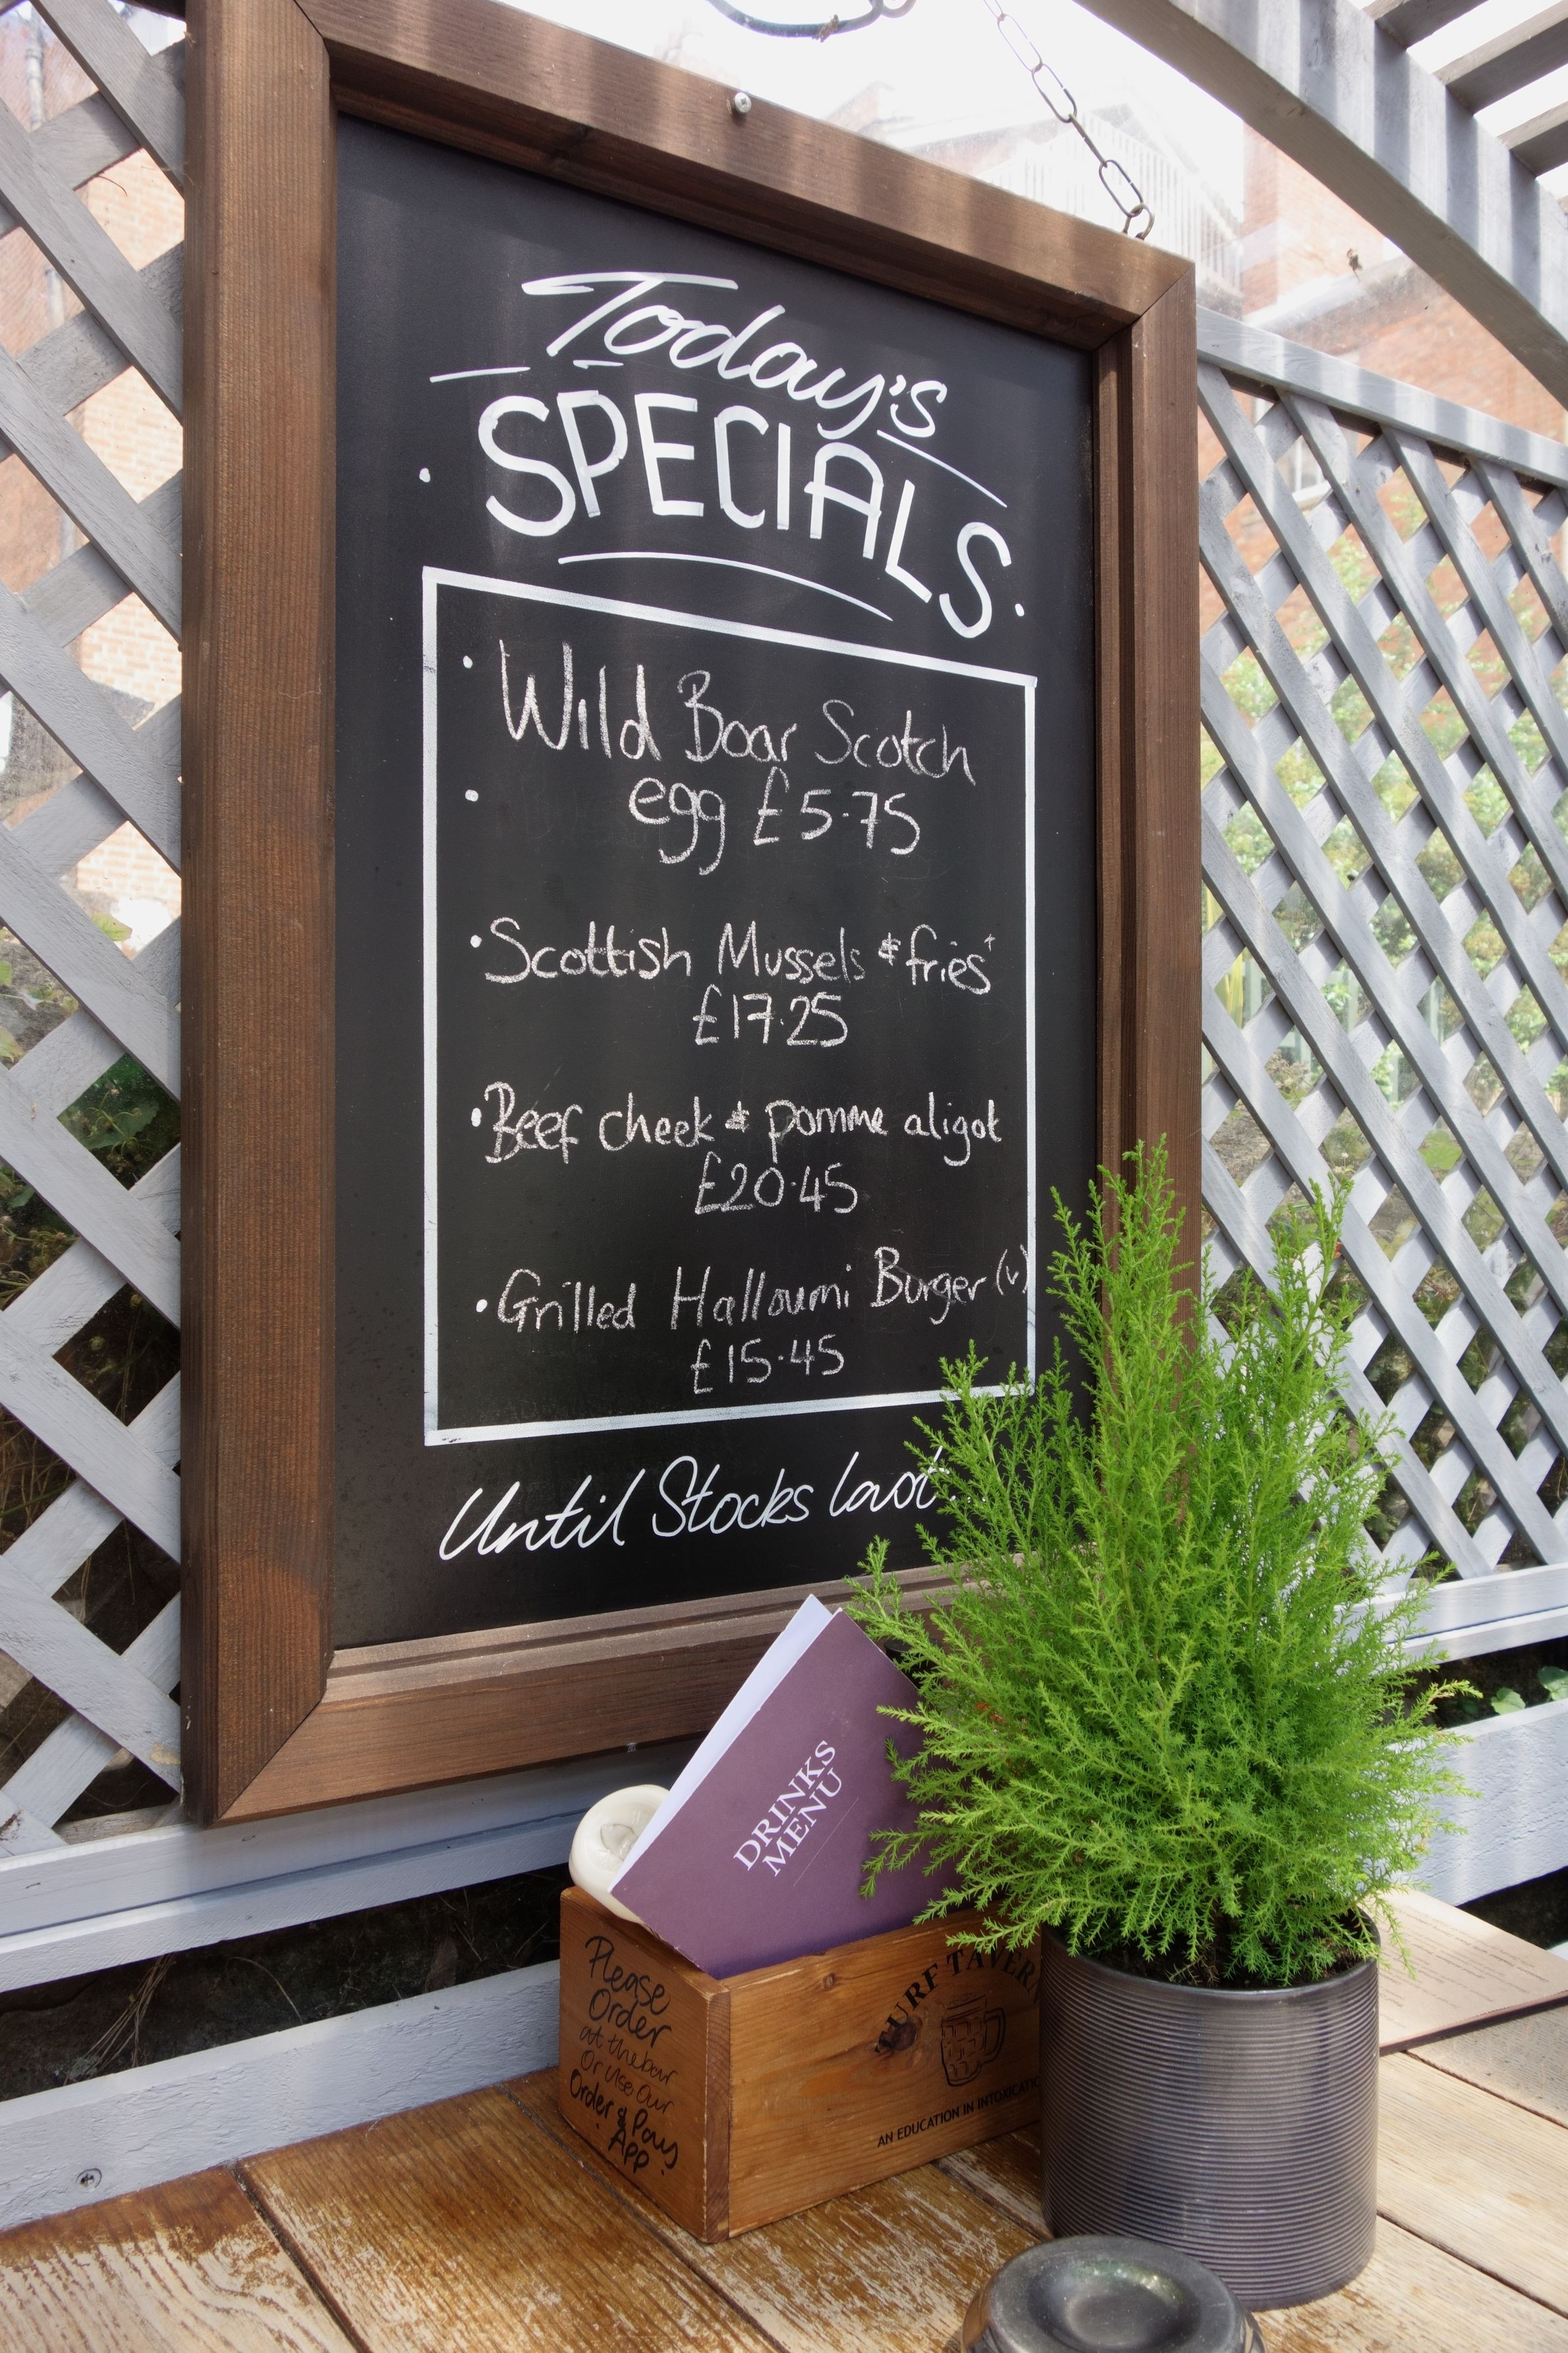 Today's
SPECIALS.
Wild Boar Scotch
egg £5.75
Scottish Mussels & fries
£17.25
Beef cheek & pomme aligot
£20.45
Grilled Halloumi Burger (v)
£15.45
Until Stocks last...
DRINKS
MENU
Please
Order
at the bar
Or use our
Order & Pay
App
TURF TAVERN
AN EDUCATION IN INTOXICATION